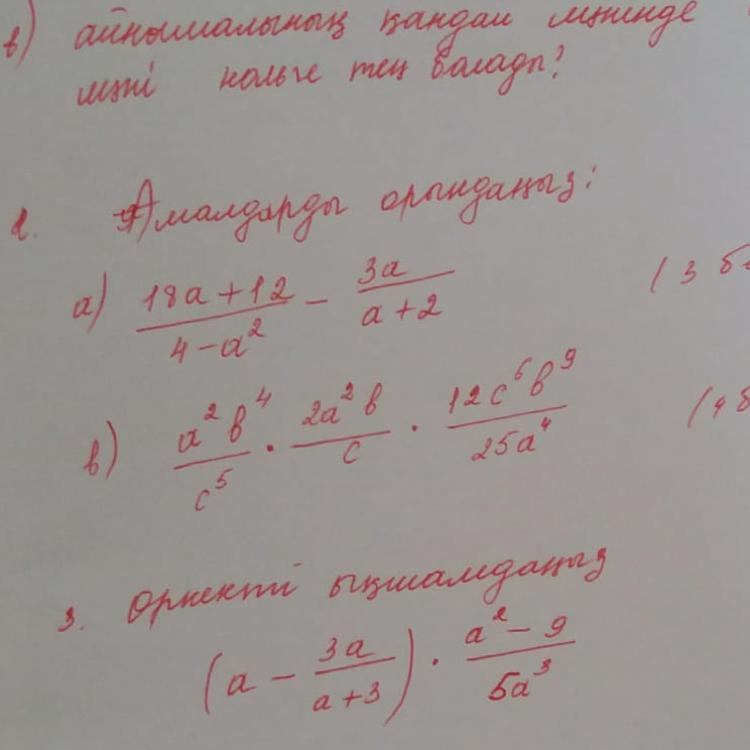 в) айнымалының қандай мәнінде
мәні нольге тең болады?
2. Амалдарды орындаңыз:
а) (18a+12)/(4-a²) - 3a/(a+2) (3 б
в) a²b⁴/c⁵ · 2a²b/c · 12c⁶b⁹/25a⁴ (4 б
3. Өрнекті ықшамдаңыз
(a - 3a/(a+3)) · (a²-9)/5a³